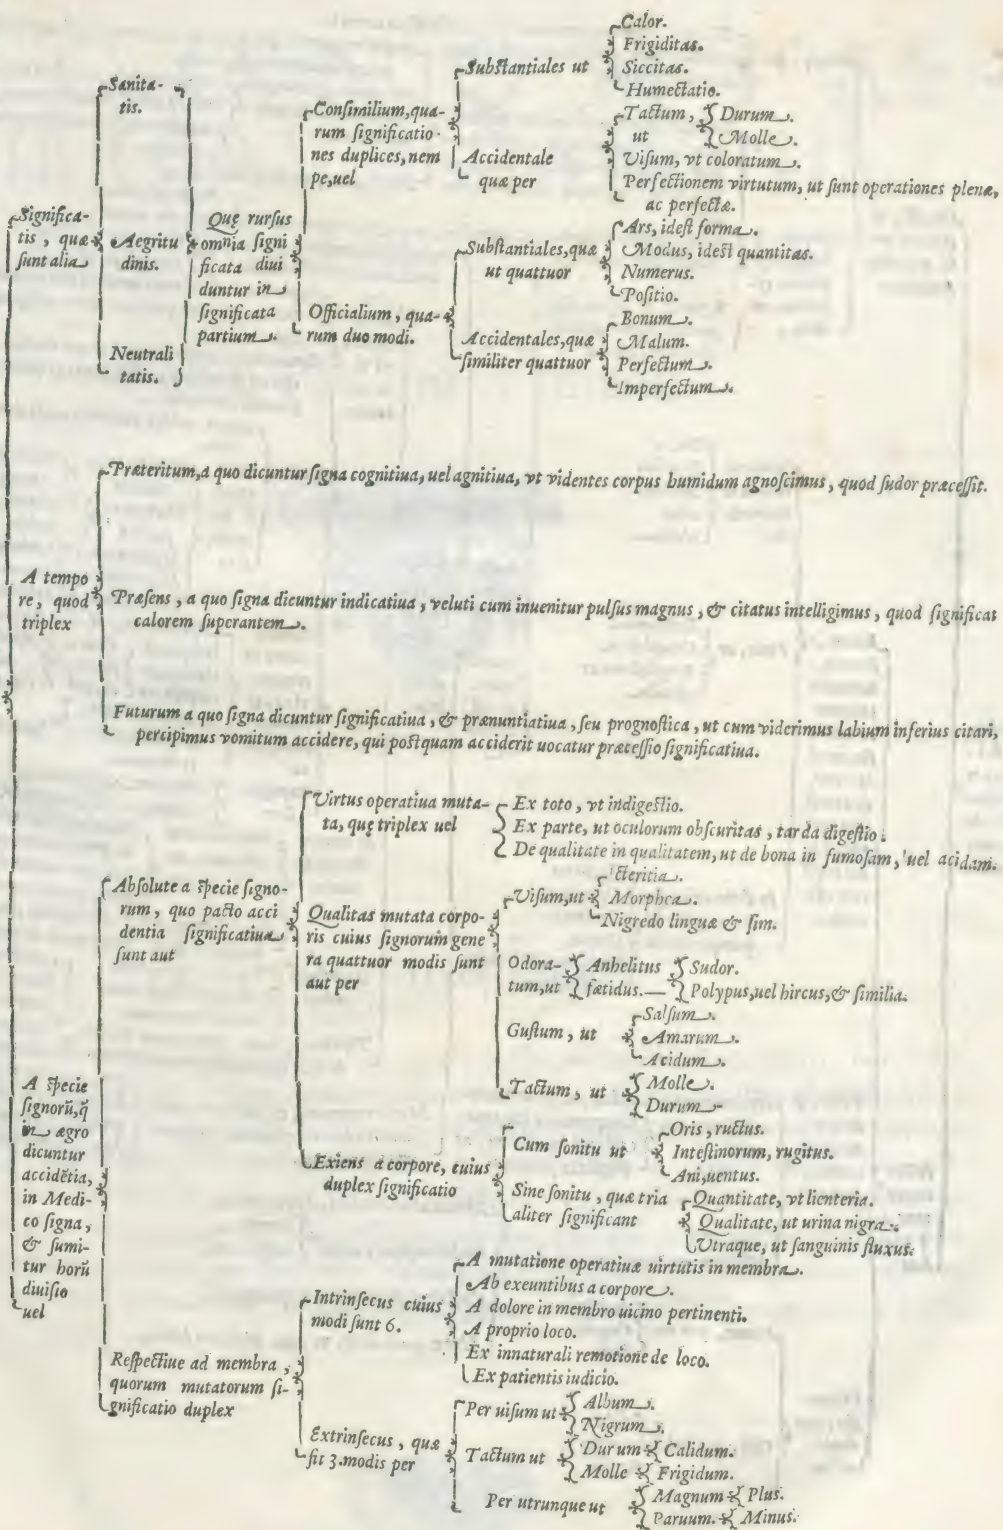 Significa-
tis, quæ
sunt alia
Sanita-
tis.
Aegritu
dinis.
Neutrali
tatis.
Quę rursus
omnia signi
ficata diui
duntur in
significata
partium.
Consimilium, qua-
rum significatio-
nes duplices, nem
pe, uel
Substantiales ut
Calor.
Frigiditas.
Siccitas.
Humectatio.
Accidentale
quæ per
Tactum,
ut
Durum.
Molle.
Uisum, vt coloratum.
Perfectionem virtutum, ut sunt operationes plenæ,
ac perfectæ.
Officialium, qua-
rum duo modi.
Substantiales, quæ
ut quattuor
Ars, idest forma.
Modus, idest quantitas.
Numerus.
Positio.
Accidentales, quæ
similiter quattuor
Bonum.
Malum.
Perfectum.
Imperfectum.
A tempo
re, quod
triplex
Præteritum, a quo dicuntur signa cognitiua, uel agnitiua, vt videntes corpus humidum agnoscimus, quod sudor præcessit.
Præsens, a quo signa dicuntur indicatiua, veluti cum inuenitur pulsus magnus, & citatus intelligimus, quod significat
calorem superantem.
Futurum a quo signa dicuntur significatiua, & prænuntiatiua, seu prognostica, ut cum viderimus labium inferius citari,
percipimus vomitum accidere, qui postquam acciderit uocatur præcessio significatiua.
A specie
signorũ, q̃
in ægro
dicuntur
accidẽtia,
in Medi-
co signa,
& sumi-
tur horũ
diuisio
uel
Absolute a specie signo-
rum, quo pacto acci
dentia significatiua
sunt aut
Uirtus operatiua muta-
ta, quę triplex uel
Ex toto, vt indigestio.
Ex parte, ut oculorum obscuritas, tarda digestio.
De qualitate in qualitatem, ut de bona in fumosam, uel acidam.
Qualitas mutata corpo-
ris cuius signorum gene
ra quattuor modis sunt
aut per
Uisum, ut
Icteritia.
Morphea.
Nigredo linguæ & sim.
Odora-
tum, ut
Anhelitus
fætidus.
Sudor.
Polypus, uel hircus, & similia.
Gustum, ut
Salsum.
Amarum.
Acidum.
Tactum, ut
Molle.
Durum
Exiens a corpore, cuius
duplex significatio
Cum sonitu ut
Oris, ructus.
Intestinorum, rugitus.
Ani, uentus.
Sine sonitu, quæ tria
aliter significant
Quantitate, vt lienteria.
Qualitate, ut urina nigra.
Utraque, ut sanguinis fluxus.
Respectiue ad membra,
quorum mutatorum si-
gnificatio duplex
Intrinsecus cuius
modi sunt 6.
A mutatione operatiuæ uirtutis in membra.
Ab exeuntibus a corpore.
A dolore in membro uicino pertinenti.
A proprio loco.
Ex innaturali remotione de loco.
Ex patientis iudicio.
Extrinsecus, quæ
fit 3. modis per
Per uisum ut
Album.
Nigrum.
Tactum ut
Durum
Calidum.
Molle
Frigidum.
Per utrunque ut
Magnum
Plus.
Paruum.
Minus.